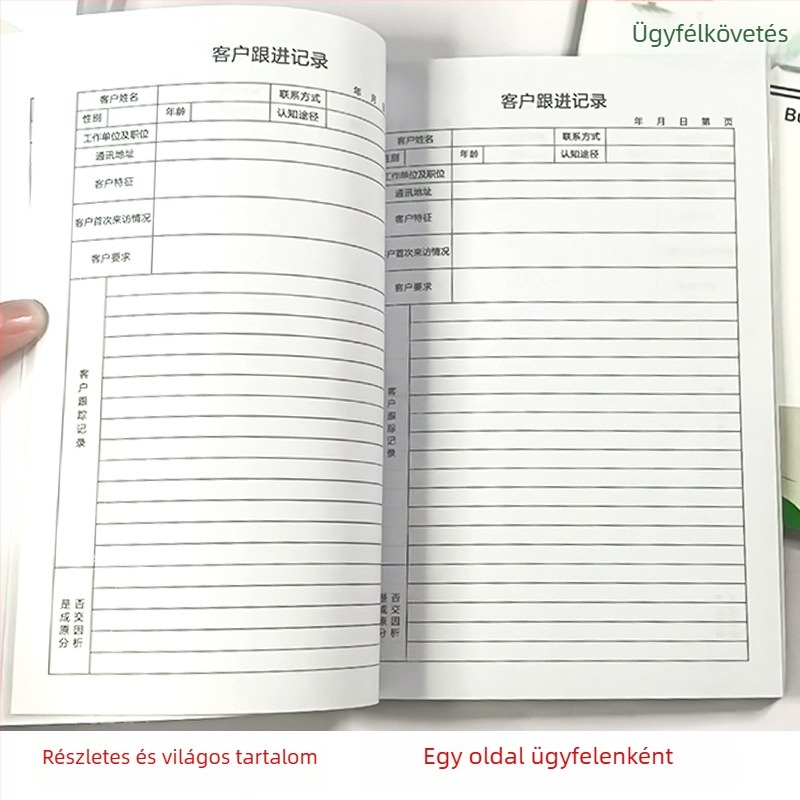 Ügyfélkövetés
客户跟进记录
年 月
客户姓名 联系方式
性别 年龄 认知途径
工作单位及职位
通讯地址
客户特征
客户首次来访情况
客户要求
客户跟踪记录
是否成交原因分析
客户跟进记录
年 月 日 第 页
客户姓名 联系方式
性别 年龄 认知途径
工作单位及职位
通讯地址
客户特征
客户首次来访情况
客户要求
客户跟踪记录
是否成交原因分析
Részletes és világos tartalom
Egy oldal ügyfelenként